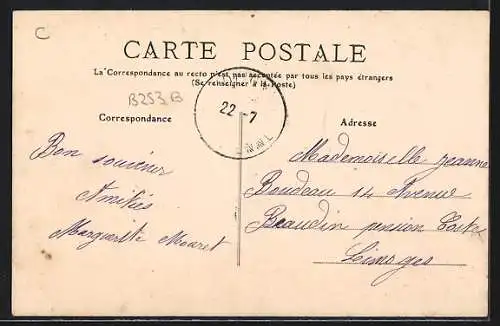 C
CARTE POSTALE
La Correspondance au recto n'est pas acceptée par tous les pays étrangers
(Se renseigner à la Poste)
B253B
22-7
Correspondance
Adresse
Bon souvenir
Amitiés
Marguerite Mouret
Mademoiselle Jeanne
Boudeau 14 Avenue
Beaudin pension
Limoges